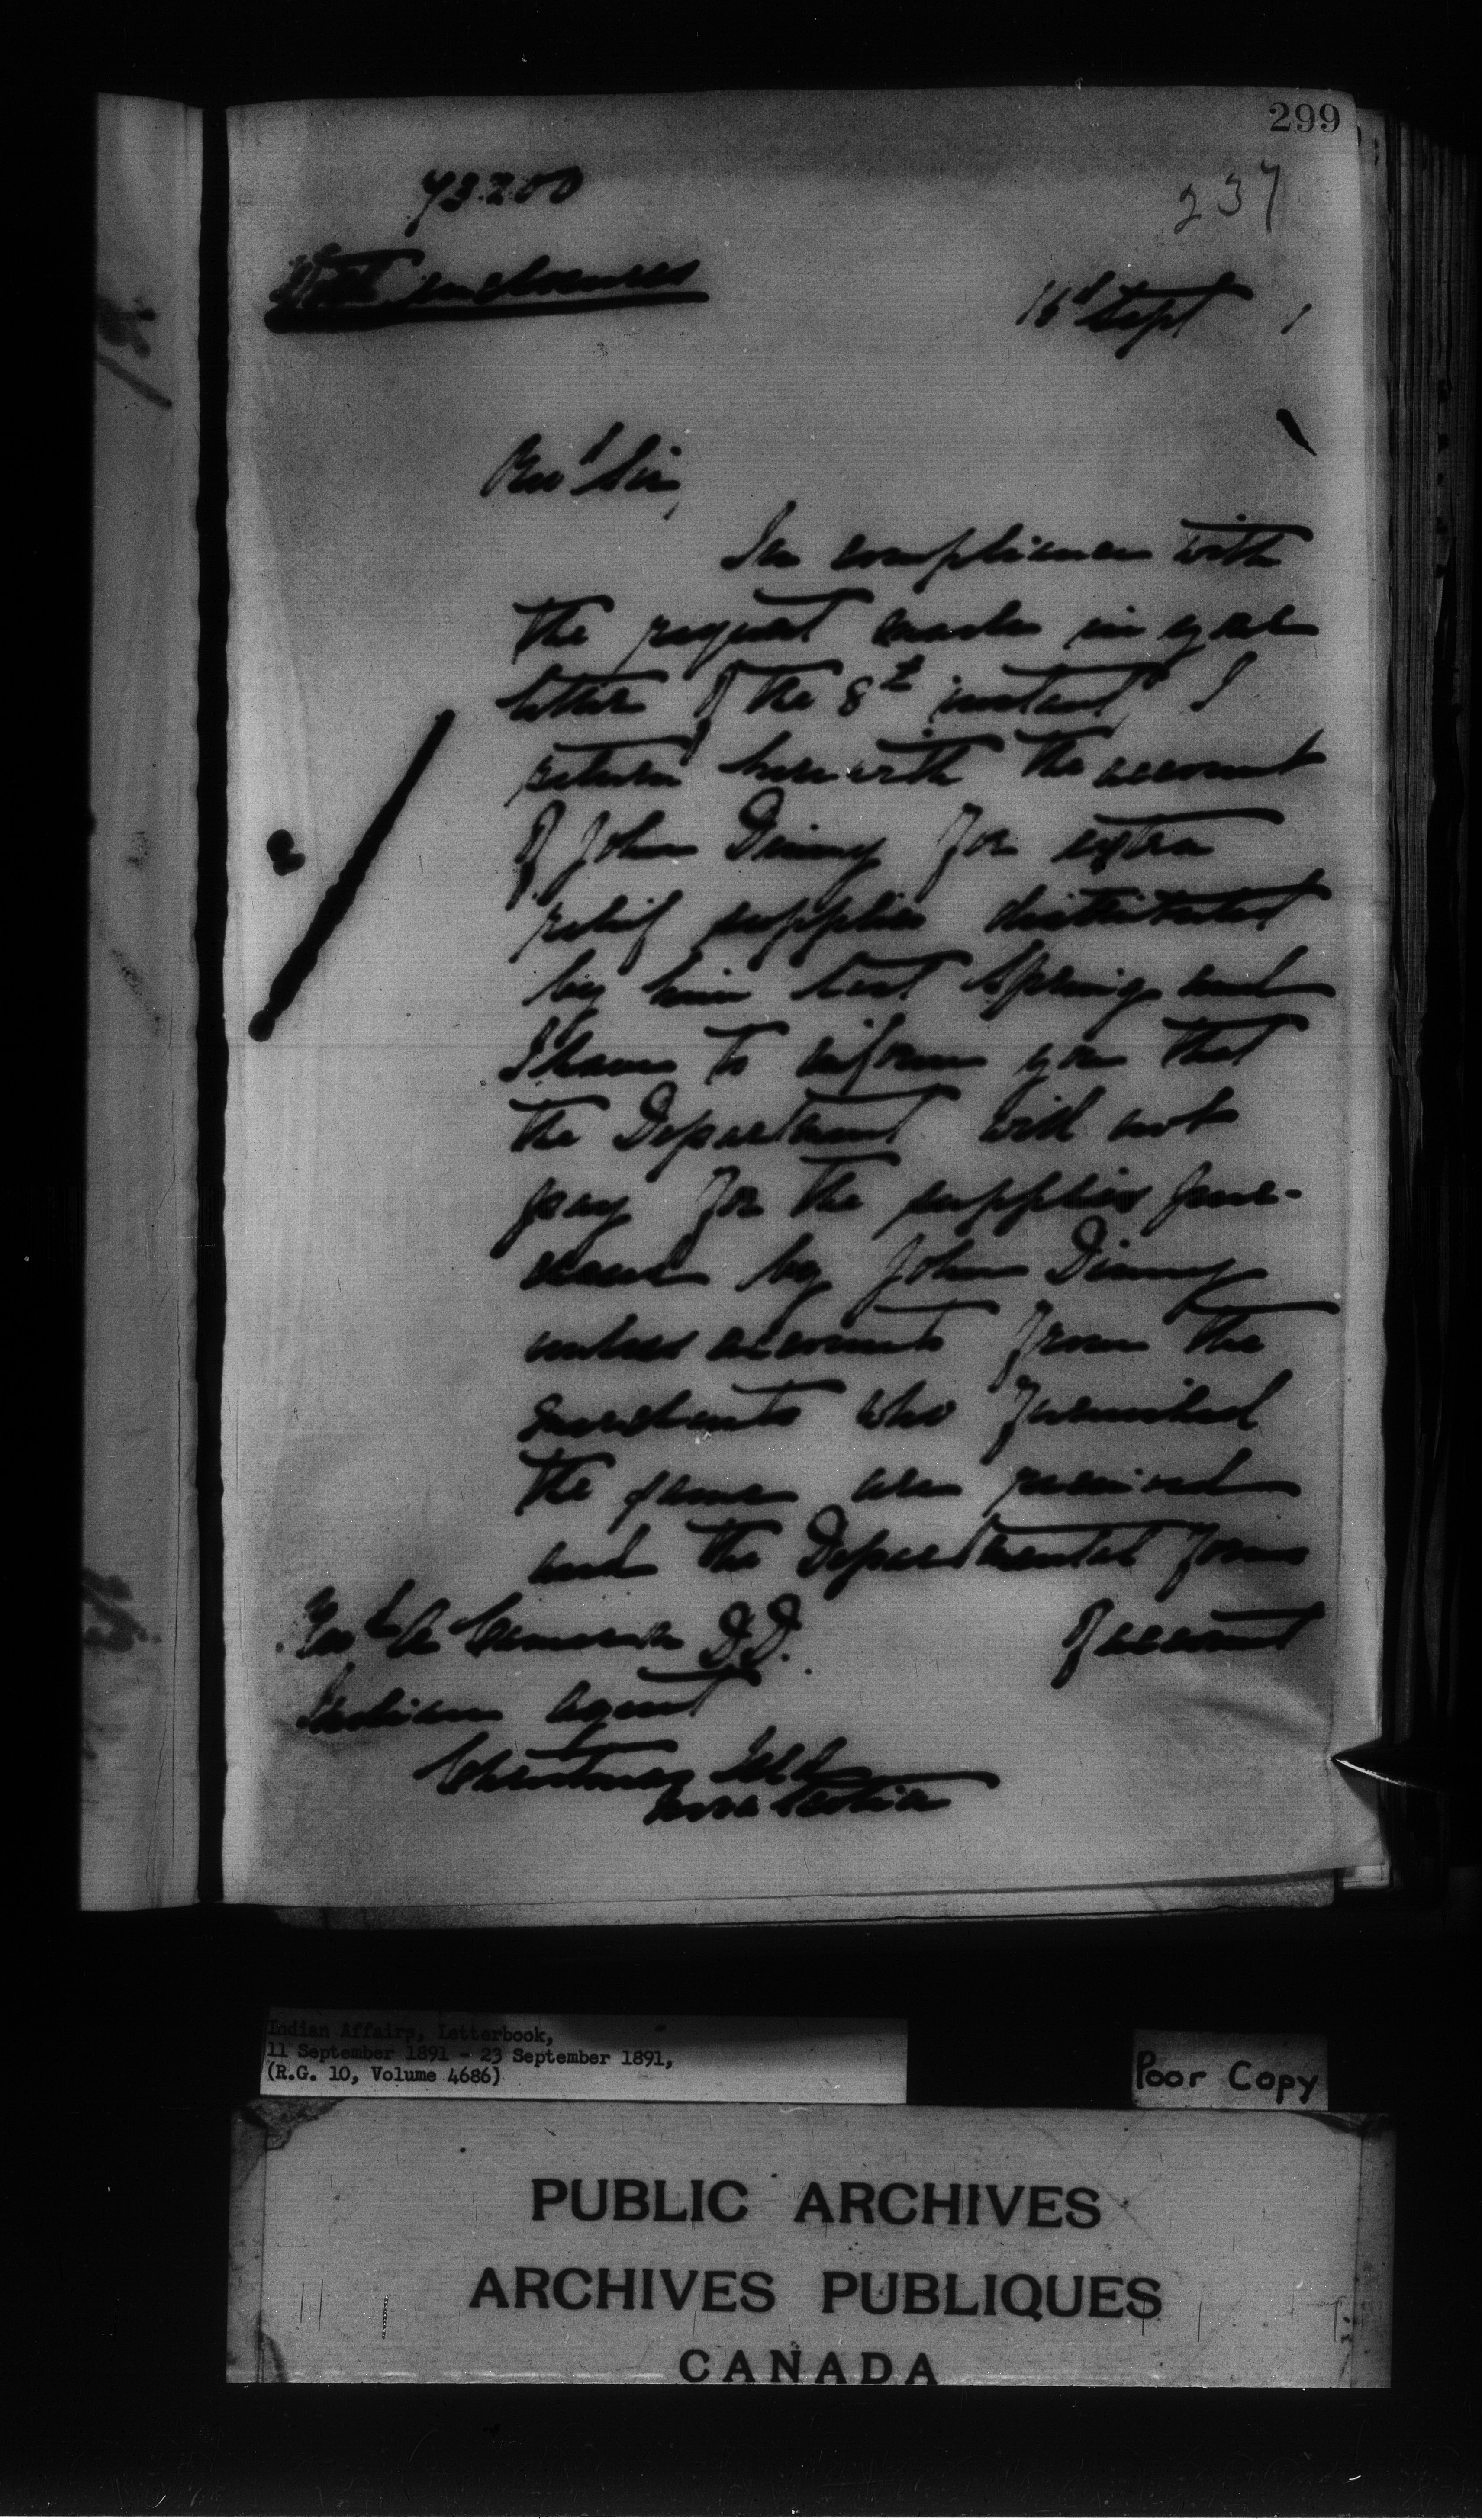 299
237
73.200
With enclosures
16th Sept 1
Revd Sir,
In compliance with
the request made in your
letter of the 8th instant I
return herewith the account
of John Dinny for extra
relief supplies distributed
by him last Spring and
I have to inform you that
the Department will not
pay for the supplies pur-
chased by John Dinny
unless accounts from the
merchants who furnished
the same are received
and the Departmental forms
of account
Revd A Cameron D.D.
Indian Agent
Christmas Isld
Nova Scotia
Indian Affairs, Letterbook,
11 September 1891 - 23 September 1891,
(R.G. 10, Volume 4686)
Poor Copy
PUBLIC ARCHIVES
ARCHIVES PUBLIQUES
CANADA